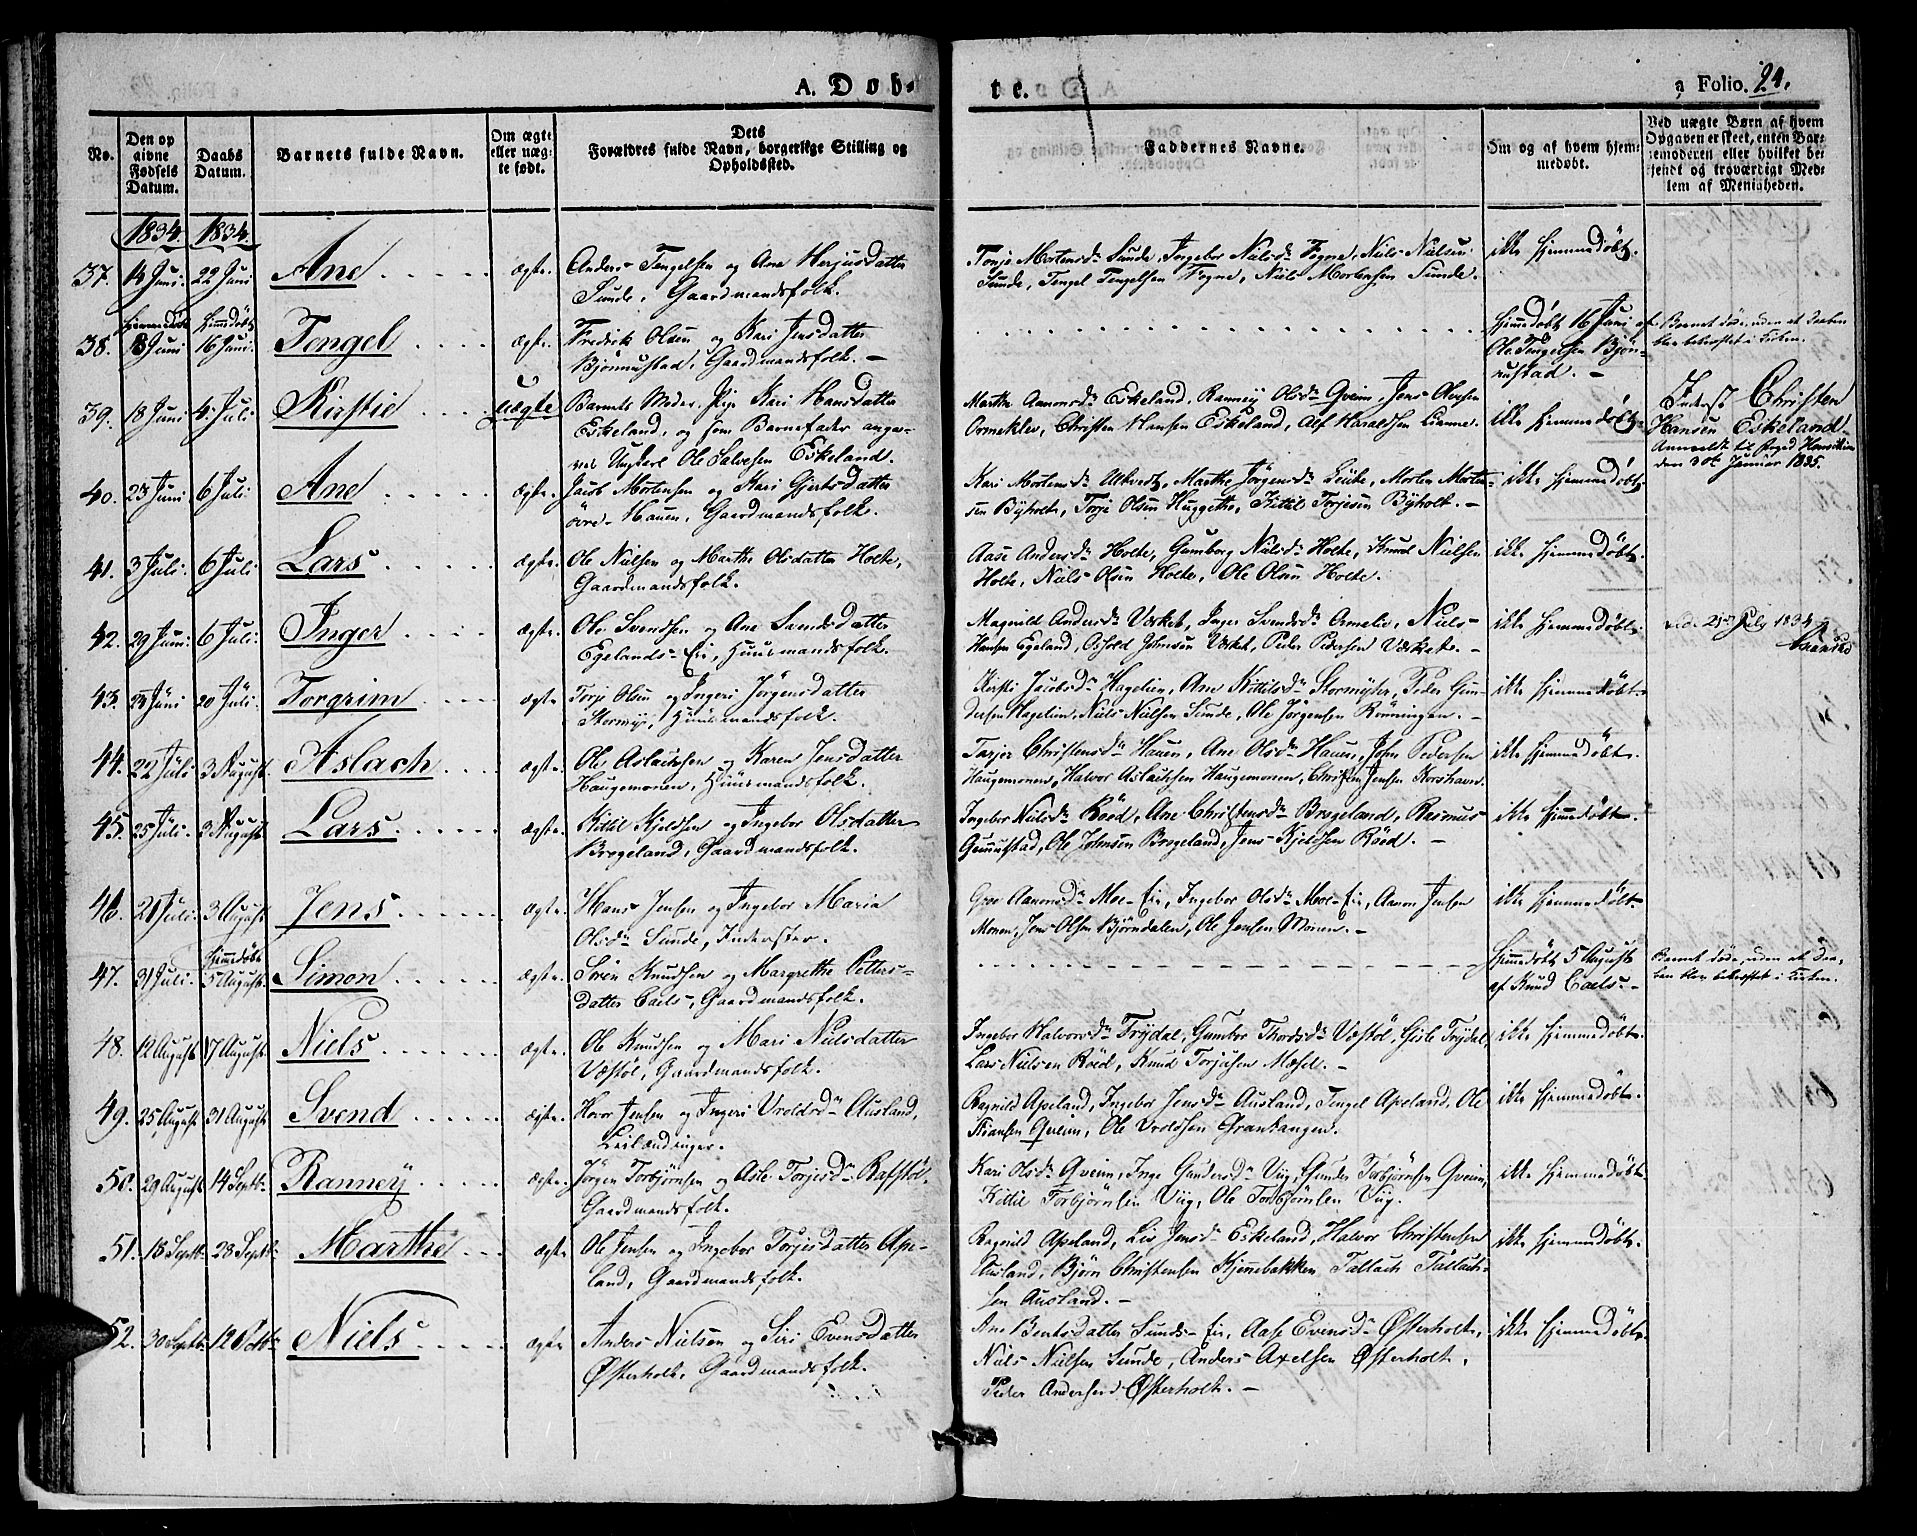 A. Døb-
te.
a Folio. 24.
No.
Den op
givne
Fødsels
Datum.
Daabs
Datum.
Barnets fulde Navn.
Om ægte
eller uæg-
te født.
Dets
Forældres fulde Navn, borgerlige Stilling og
Opholdssted.
Faddernes Navne.
Om og af hvem hjem-
medøbt.
Ved uægte Børn af hvem
Opgaven er skeet, enten Bar-
nemoderen eller hvilket be-
kjendt og troværdigt Med-
lem af Menigheden.
1834. 1834.
37. 14 Juni. 22 Juni Ane ægte. Anders Tengelsen og Ane Herjusdatter
Sunde, Gaardmandsfolk.
Tonje Mortensdr Sunde, Ingebor Nielsdr Fogne, Niels Nielsen
Sunde, Tengel Tengelsen Fogne, Niels Mortensen Sunde.
ikke hjemmedøbt.
38. Juni 16 Juni. Tengel ægte. Fredrik Olsen og Kari Jensdatter
Bjönnustad, Gaardmandsfolk. —
Hjemmedøbt 16 Juni af
Ole Tengelsen Bjön-
nustad. —
Barnet døde, uden at Daaben
blev bekræftet i Kirken.
39. 18 Juni 4. Juli Kirstie uægte Barnets Moder Pige Kari Hansdatter
Eskeland, og som Barnefader angi-
ves Ungkarl Ole Salvesen Eskeland.
Marthe Aanonsdr Eskeland, Ranney Olsdr Gveim, Jens Olsen
Ormekler, Christen Hansen Eskeland, Alf Haraldsen Lianne.
ikke hjemmedøbt.
Inderst Christen
Hansen Eskeland.
Anmeldt til Foged
den 30te Januar 1835.
40. 23 Juni 6 Juli Ane ægte. Jacob Mortensen og Kari Gjertsdatter
övre Hauen, Gaardmandsfolk.
Kari Mortensdr Ulkvedt, Marthe Jörgensdr, Morten Morten-
sen Byholt, Torje Olsen Huggethe, Kittil Torjesen Byholt. —
ikke hjemmedøbt.
41. 3 Juli. 6 Juli Lars ægte. Ole Nielsen og Marthe Olsdatter Holte,
Gaardmandsfolk.
Aase Andersdr Holte, Gunborg Nielsdr Holte, Knud Nielsen
Holte, Niels Olsen Holte, Ole Olsen Holte.
ikke hjemmedøbt.
42. 29 Juni. 6 Juli. Inger ægte. Ole Svendsen og Ane Svendsdatter
Egelands-Eie, Huusmandsfolk.
Magnild Andersdr Værket, Inger Svendsdr Ormelie, Niels
Hansen Egeland, Osfold Johnsen Værket, Peder Pedersen Værket. —
ikke hjemmedøbt.
21 July 1834
43. 23 Juni 20 Juli. Torgrim ægte. Torje Olsen og Ingeri Jörgensdatter
Stormyr, Huusmandsfolk.
Kirsti Jacobsdr Hagelien, Ane Kittilsdr Stormyr, Peder Gun-
dersen Hagelien, Niels Nielsen Sunde, Ole Jörgensen Rönningen. —
ikke hjemmedøbt.
44. 22 Juli 3 August. Aslach ægte. Ole Aslachsen og Karen Jensdatter
Haugemonen, Huusmandsfolk.
Tarjer Christensdr Hauen, Ane Olsdr Hauen, John Pedersen
Haugemonen, Halvor Aslachsen Haugemonen, Christen Jensen Korshavn.
ikke hjemmedøbt.
45. 25 Juli. 3 August Lars ægte. Kittil Kjeldsen og Ingebor Olsdatter
Brogeland, Gaardmandsfolk.
Ingebor Nielsdr Röed, Ane Christensdr Brogeland, Rasmus
Gunnustad, Ole Johnsen Brogeland, Jens Kjeldsen Röed. —
ikke hjemmedøbt.
46. 21 Juli. 3 August Jens ægte. Hans Jensen og Ingebor Maria
Olsdr Sunde, Inderster.
Groe Aanonsdr Moe-Eie, Ingebor Olsdr Moe-Eie, Aanon Jensen
Monen, Jens Olsen Bjørndalen, Ole Jensen Monen. —
ikke hjemmedøbt.
47. 31 Juli. Hjemmedøbt 5 August Simon ægte. Sören Knudsen og Margrethe Petters-
datter Caels, Gaardmandsfolk.
Hjemmedøbt 5 August
af Knud Caels. —
Barnet døde, uden at Daa-
ben blev bekræftet i Kirken.
48. 12 August 17 August Niels ægte. Ole Knudsen og Mari Nielsdatter
Væstöl, Gaardmandsfolk.
Ingebor Halvorsdr Frydal, Gunbor Thordsdr Væstöl, Gisle Frydal,
Lars Nielsen Röed, Knud Torjusen Mæsel. —
ikke hjemmedøbt.
49. 25 August 31 August Svend ægte. Hovor Jensen og Ingeri Uroldsdr Ausland,
Leilændinger.
Ragnild Apeland, Ingebor Jensdr Ausland, Tengel Apeland, Ole
Gveim, Ole Uroldsen Grankangen.
ikke hjemmedøbt.
50. 29 August 14 Septbr. Ranney ægte. Jörgen Torbjörnsen og Asle Torjesdr Rafstöl,
Gaardmandsfolk.
Kari Olsdr Gveim, Inge Gundersdr Viig, Gunder Torbjörnsen Gveim,
Kittil Torbjörnsen Viig, Ole Torbjörnsen Viig.
ikke hjemmedøbt.
51. 18 Septbr. 28 Septbr. Marthe ægte Ole Jensen og Ingebor Torjesdatter Ape-
land, Gaardmandsfolk.
Ragnild Apeland, Liv Jensdr Eskeland, Halvor Christensen
Ausland, Bjørn Christensen Kjennebakken, Tallach Tallach-
sen Ausland. —
ikke hjemmedøbt.
52. 30 Septbr. 12 Octbr Niels ægte Anders Nielsen og Siri Evensdatter
Østerholt, Gaardmandsfolk.
Ane Berntsdatter Sunds-Eie, Aase Evensdr Østerholt,
Niels Nielsen Sunde, Anders Axelsen Østerholt,
Peder Andersen Østerholt. —
ikke hjemmedøbt.